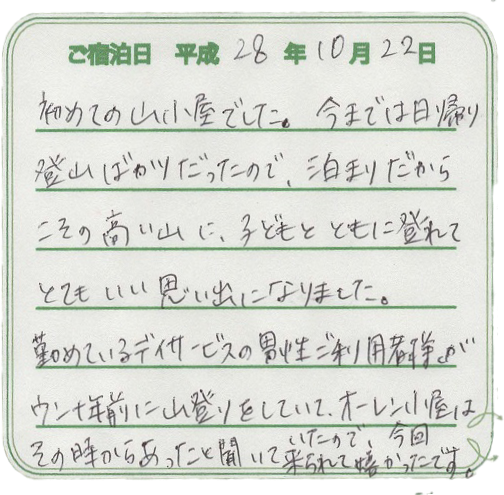 ご宿泊日 平成 28 年 10 月 22 日
初めての山小屋でした。今までは日帰り
登山ばかりだったので、泊まりだから
こその高い山に、子どもとともに登れて
とてもいい思い出になりました。
勤めているデイサービスの男性ご利用者様が
ウン十年前に山登りをしていて、オーレン小屋は
その時からあったと聞いていたので、今回
来られて嬉かったです。